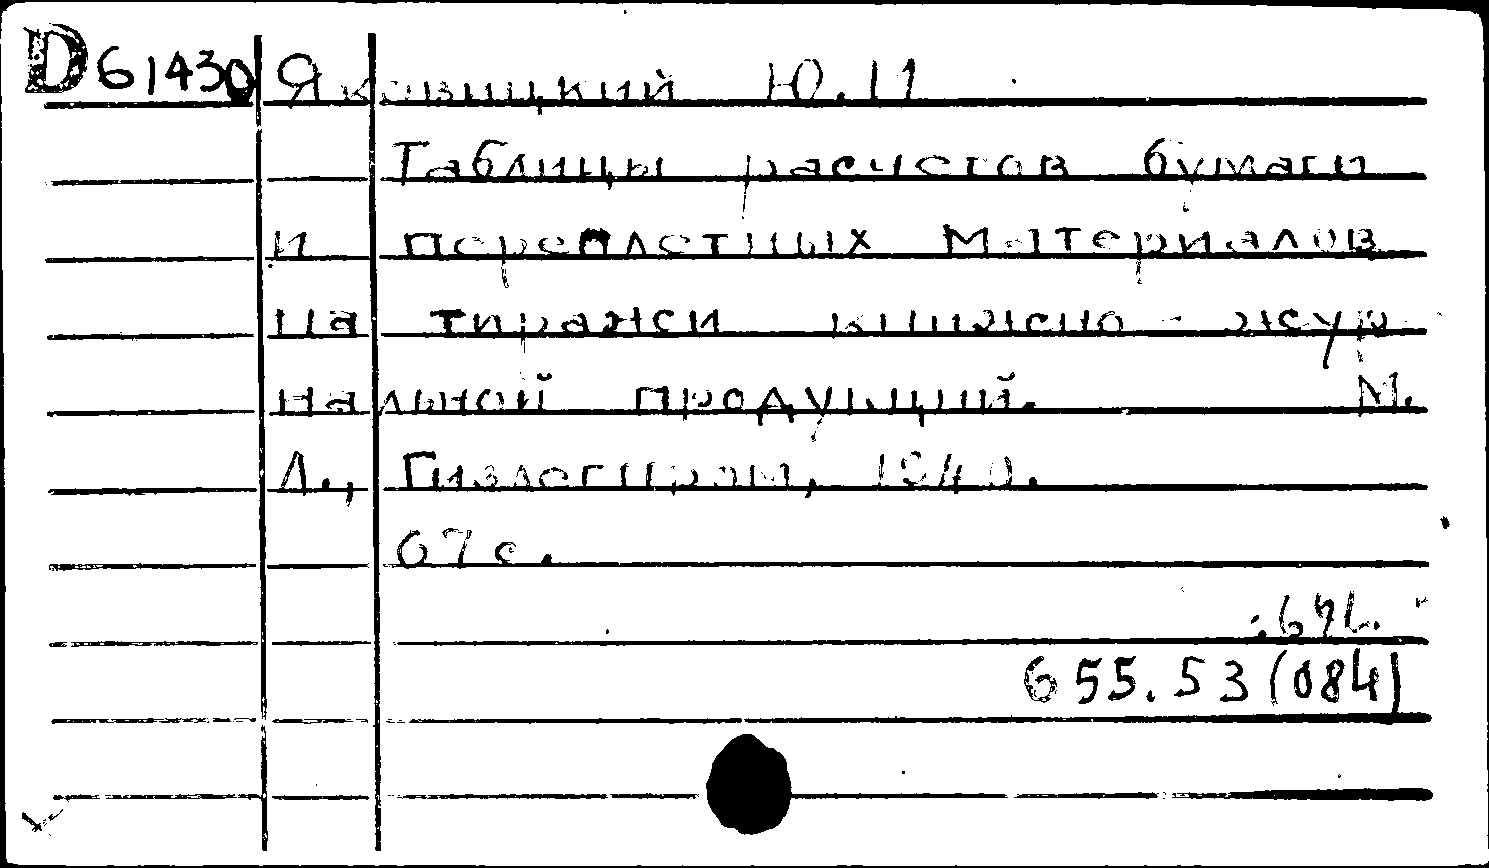 D61430 Яковицкий Ю.И
Таблицы расчетов бумаги
и переплетных материалов
на тиражи книжно-жур
нальной продукций. М.
Л., Гизлегпром, 1940.
67 с.
655.53(084)